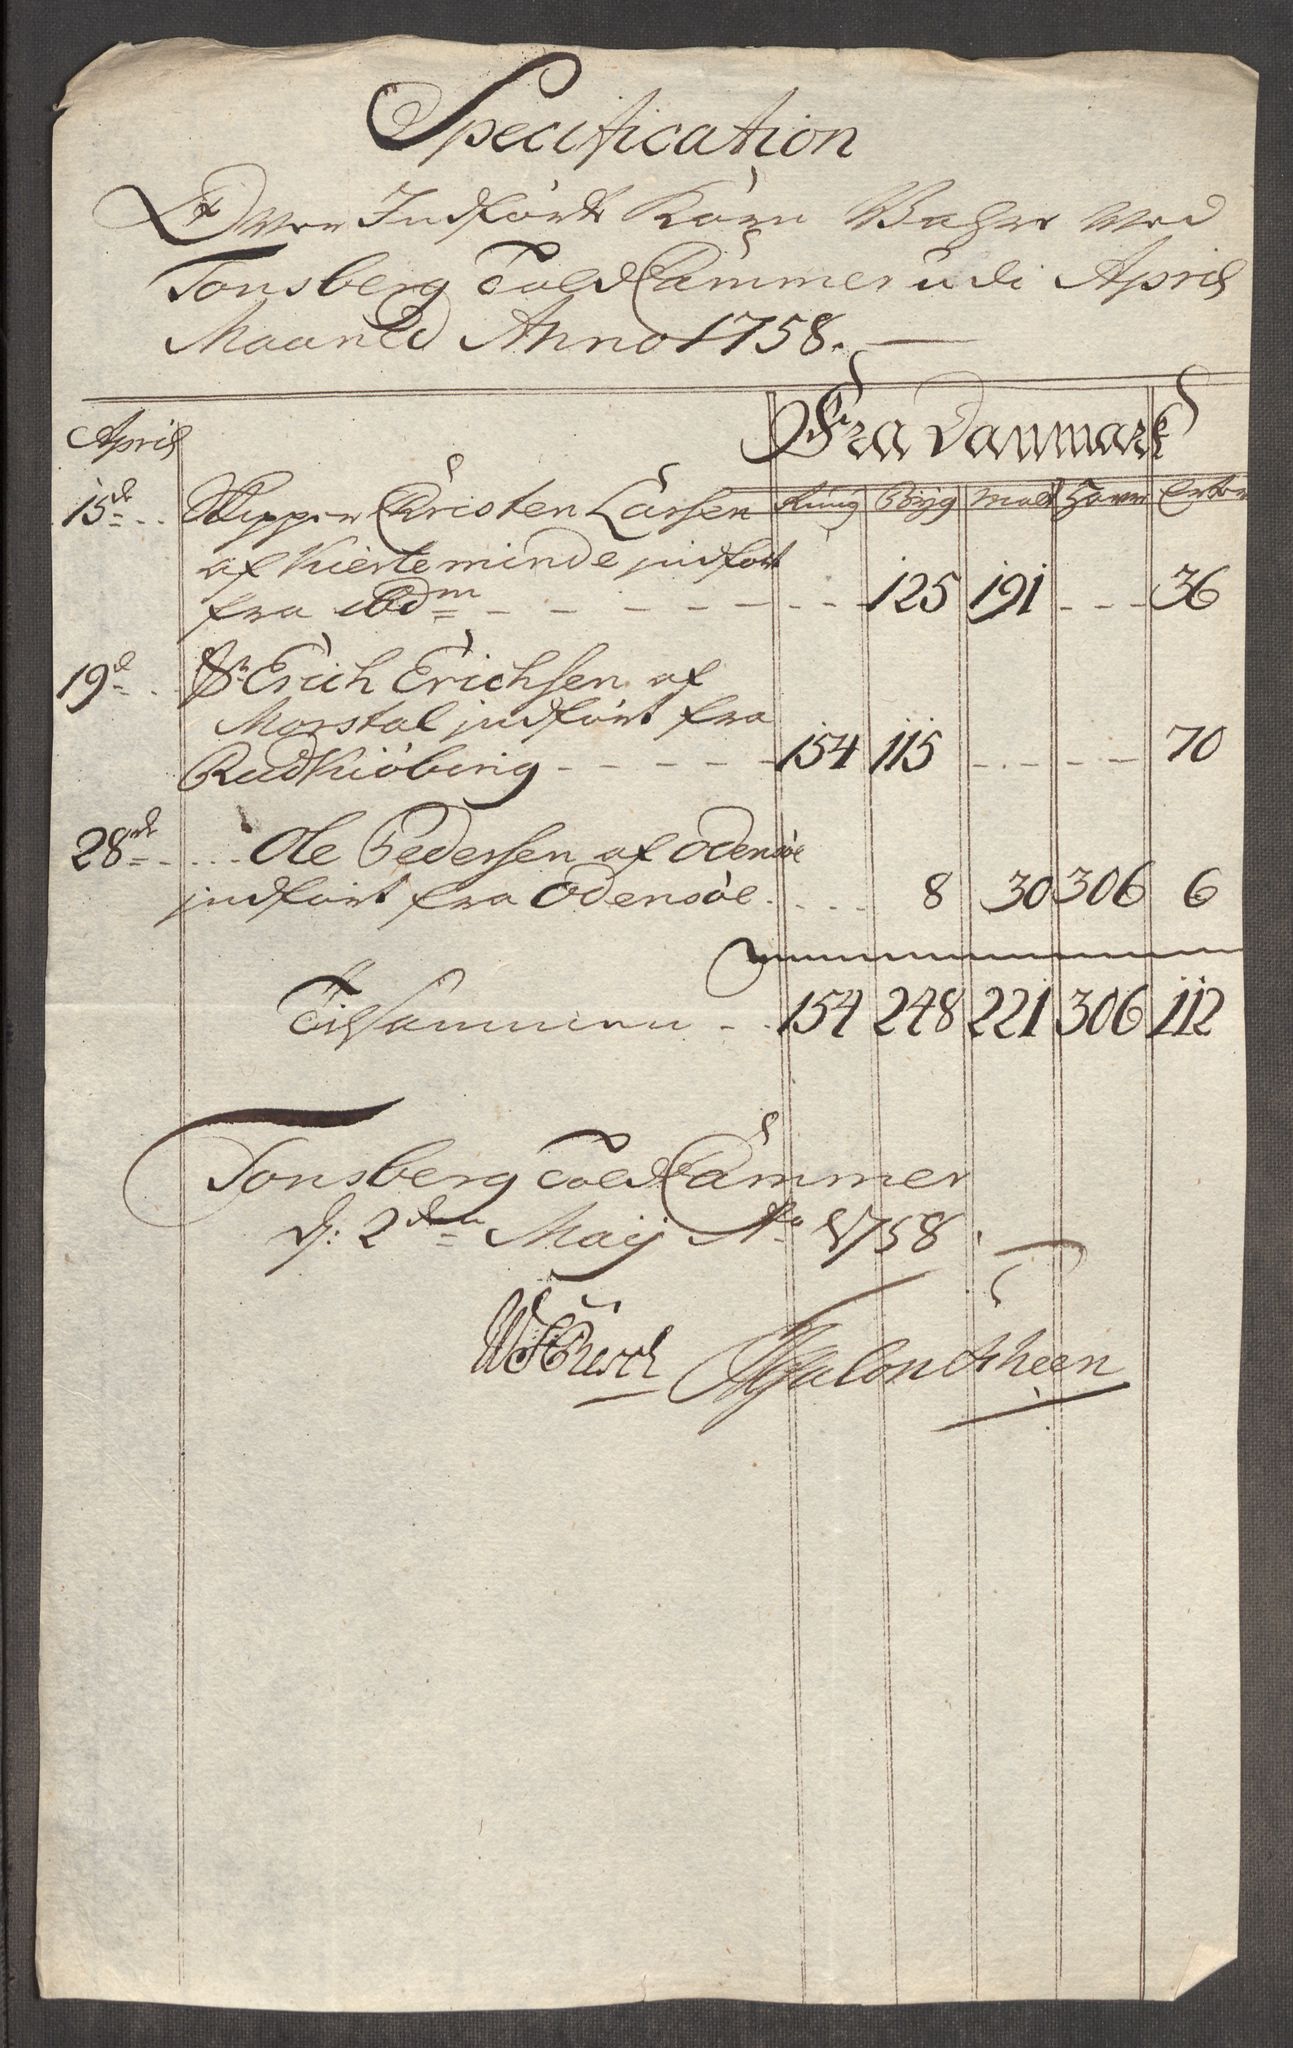 Specification
Over Indført Korn Vahre ved
Tonsberg Told Cammer udi April
Maaned Anno 1758.
April Fra Danmark
Rúug Bÿgg Malt Havre Erter
15de Skipper Christen Larsen
af Kierteminde indført
fra ibdm 125 191 36
19de Sr Erich Erichsen af
Morstal indført fra
Rudkiøbing 154 115 70
28de Ole Pedersen af Odensøe
indført fra Odensøe 8 30 306 6
Tilsammen 154 248 221 306 112
Tonsberg Told Cammer
d: 2den Maij Ao 1758.